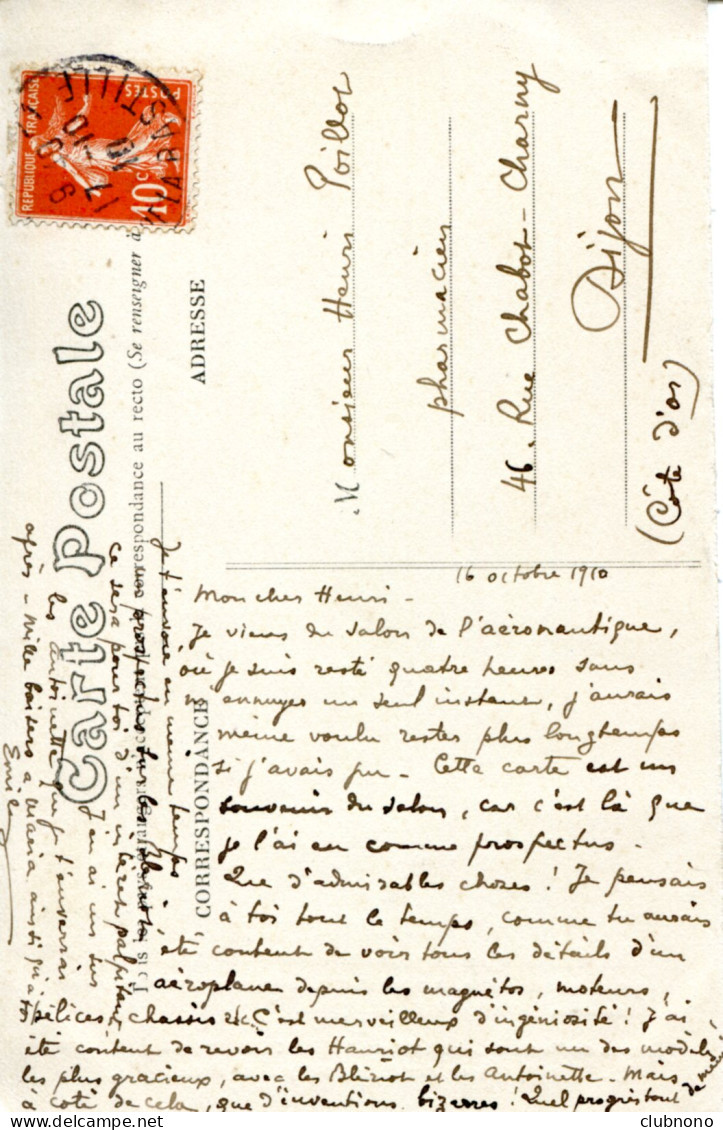 Carte Postale
correspondance au recto (Se renseigner à
CORRESPONDANCE
ADRESSE
REPUBLIQUE FRANÇAISE
POSTES
10c
LA BASTILLE
17 -10
10
Monsieur Henri Poillot
pharmacien
46, Rue Chabot-Charny
Dijon
(Côte d'or)
16 octobre 1910
Mon cher Henri -
Je viens du salon de l'aéronautique,
où je suis resté quatre heures sans
m'ennuyer un seul instant, j'aurais
même voulu rester plus longtemps
si j'avais pu - Cette carte est un
souvenir du salon, car c'est là que
je l'ai eu comme prospectus -
Que d'admirables choses! Je pensais
à toi tout le temps, comme tu aurais
été content de voir tous les détails d'un
aéroplane depuis les magnétos, moteurs,
hélices, chassis etc. C'est merveilleux d'ingéniosité! J'ai
été content de revoir les Hanriot qui sont un des modèles
les plus gracieux, avec les Blériot et les Antoinette - Mais
à coté de cela, que d'inventions bizarres! Quel progrès tout de même!
Je t'envoie en même temps
prospectus sur les
ce sera pour toi d'un intérêt palpitant
J'en ai un sur
les Antoinette que je t'enverrai
après - Mille baisers à Maria ainsi qu'à toi
Emile
clubnono